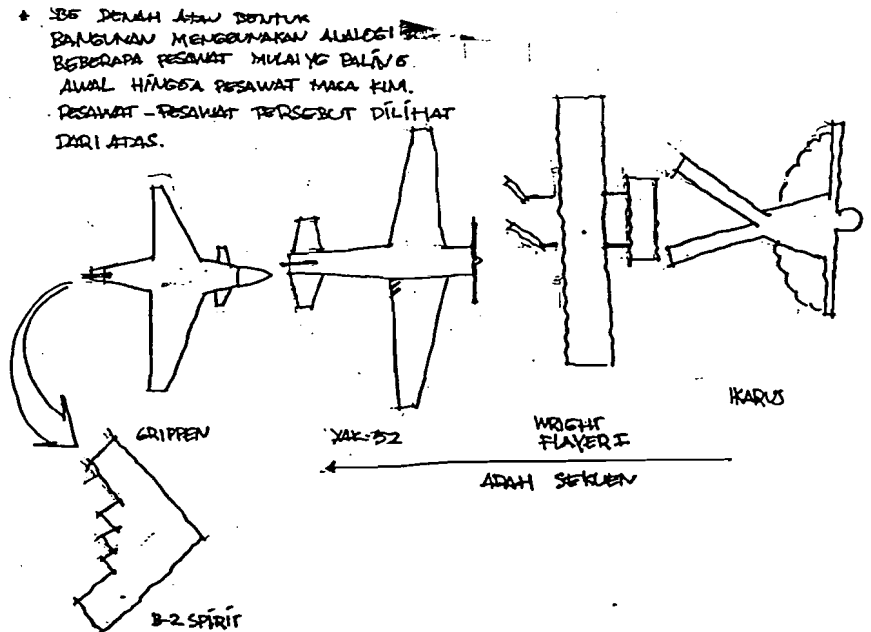 * IDE DENAH ATAU BENTUK
BANGUNAN MENGGUNAKAN ANALOGI
BEBERAPA PESAWAT MULAI YG PALING
AWAL HINGGA PESAWAT MASA KINI.
PESAWAT-PESAWAT TERSEBUT DILIHAT
DARI ATAS.
IKARUS
WRIGHT
FLAYER I
YAK-52
GRIPPEN
ARAH SEKUEN
B-2 SPIRIT